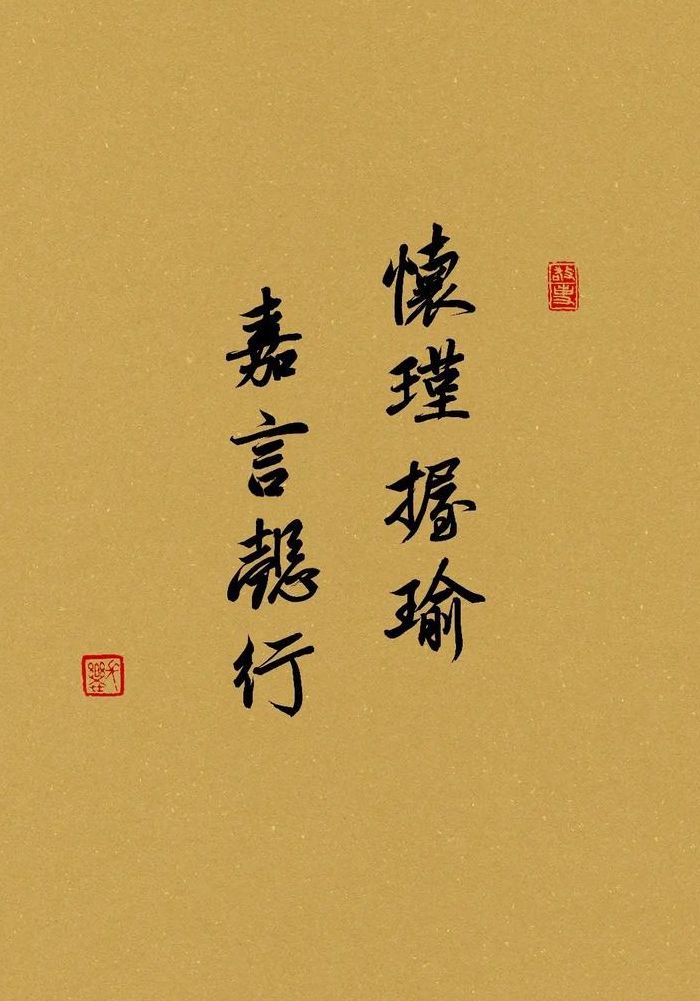 懷瑾握瑜
嘉言懿行